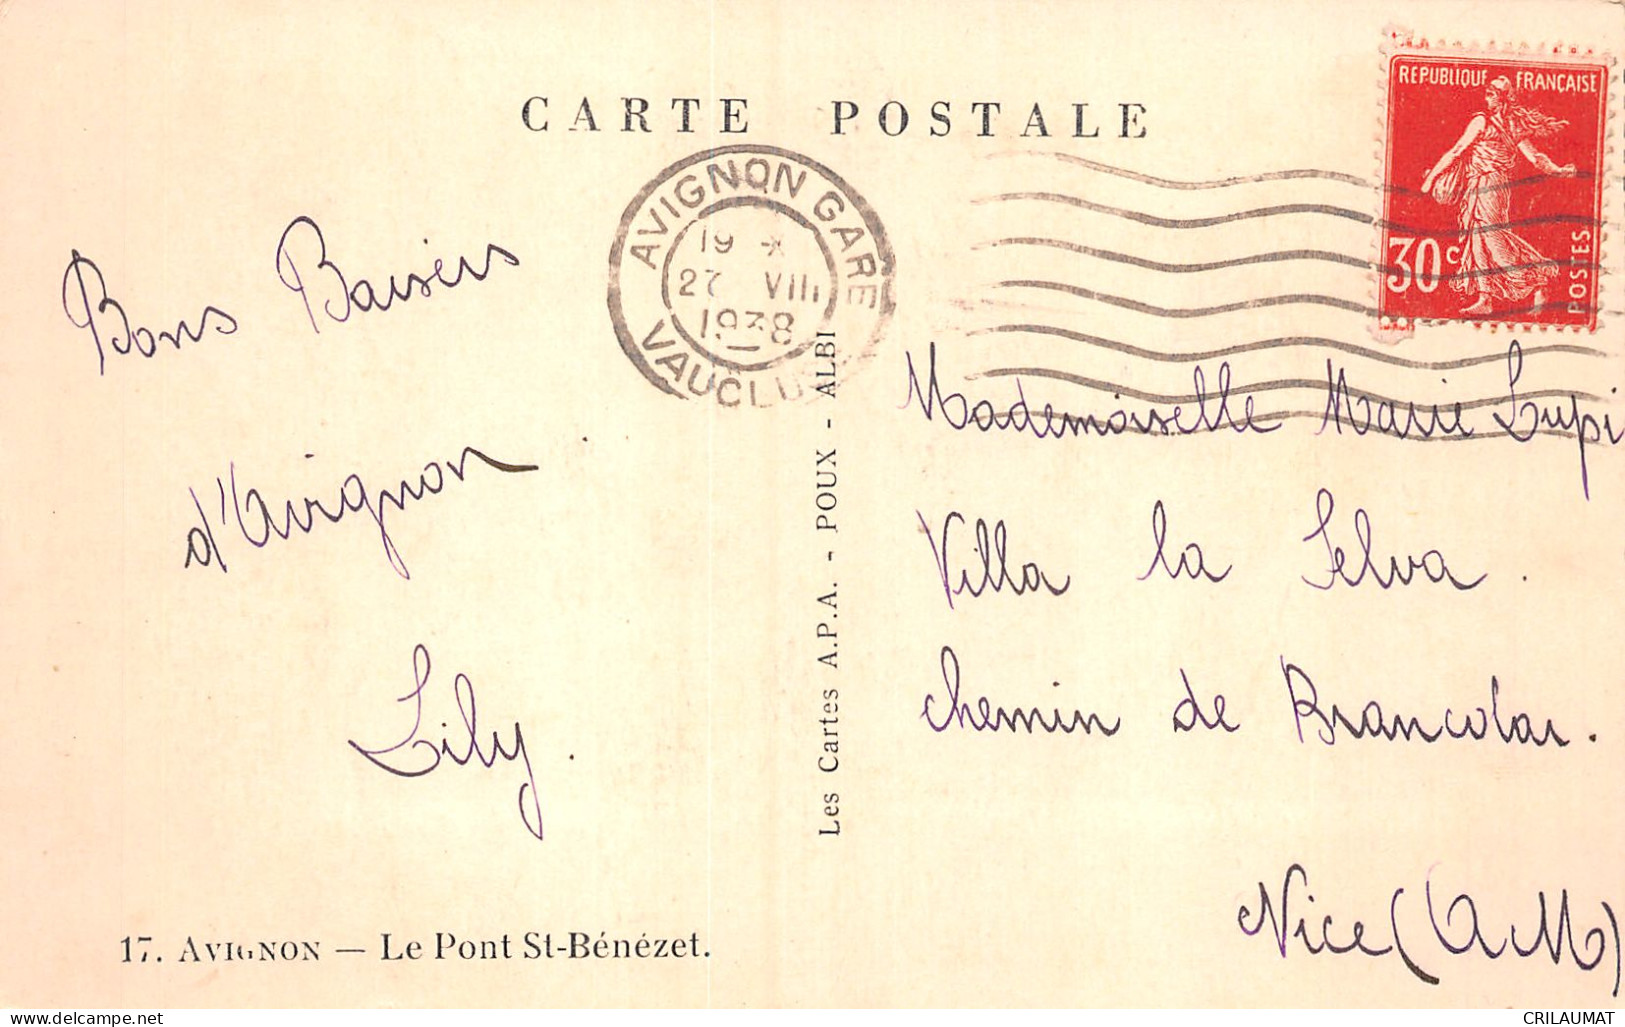 CARTE POSTALE
REPUBLIQUE FRANÇAISE
30c
POSTES
AVIGNON GARE
19 *
27 VIII
1938
VAUCLUSE
Bons Baisers
d'Avignon
Lily.
17. AVIGNON — Le Pont St-Bénézet.
Les Cartes A.P.A. - POUX - ALBI
Mademoiselle Marie Lupi
Villa la Selva.
chemin de Brancolar.
Nice (A M)
delcampe.net
CRILAUMAT